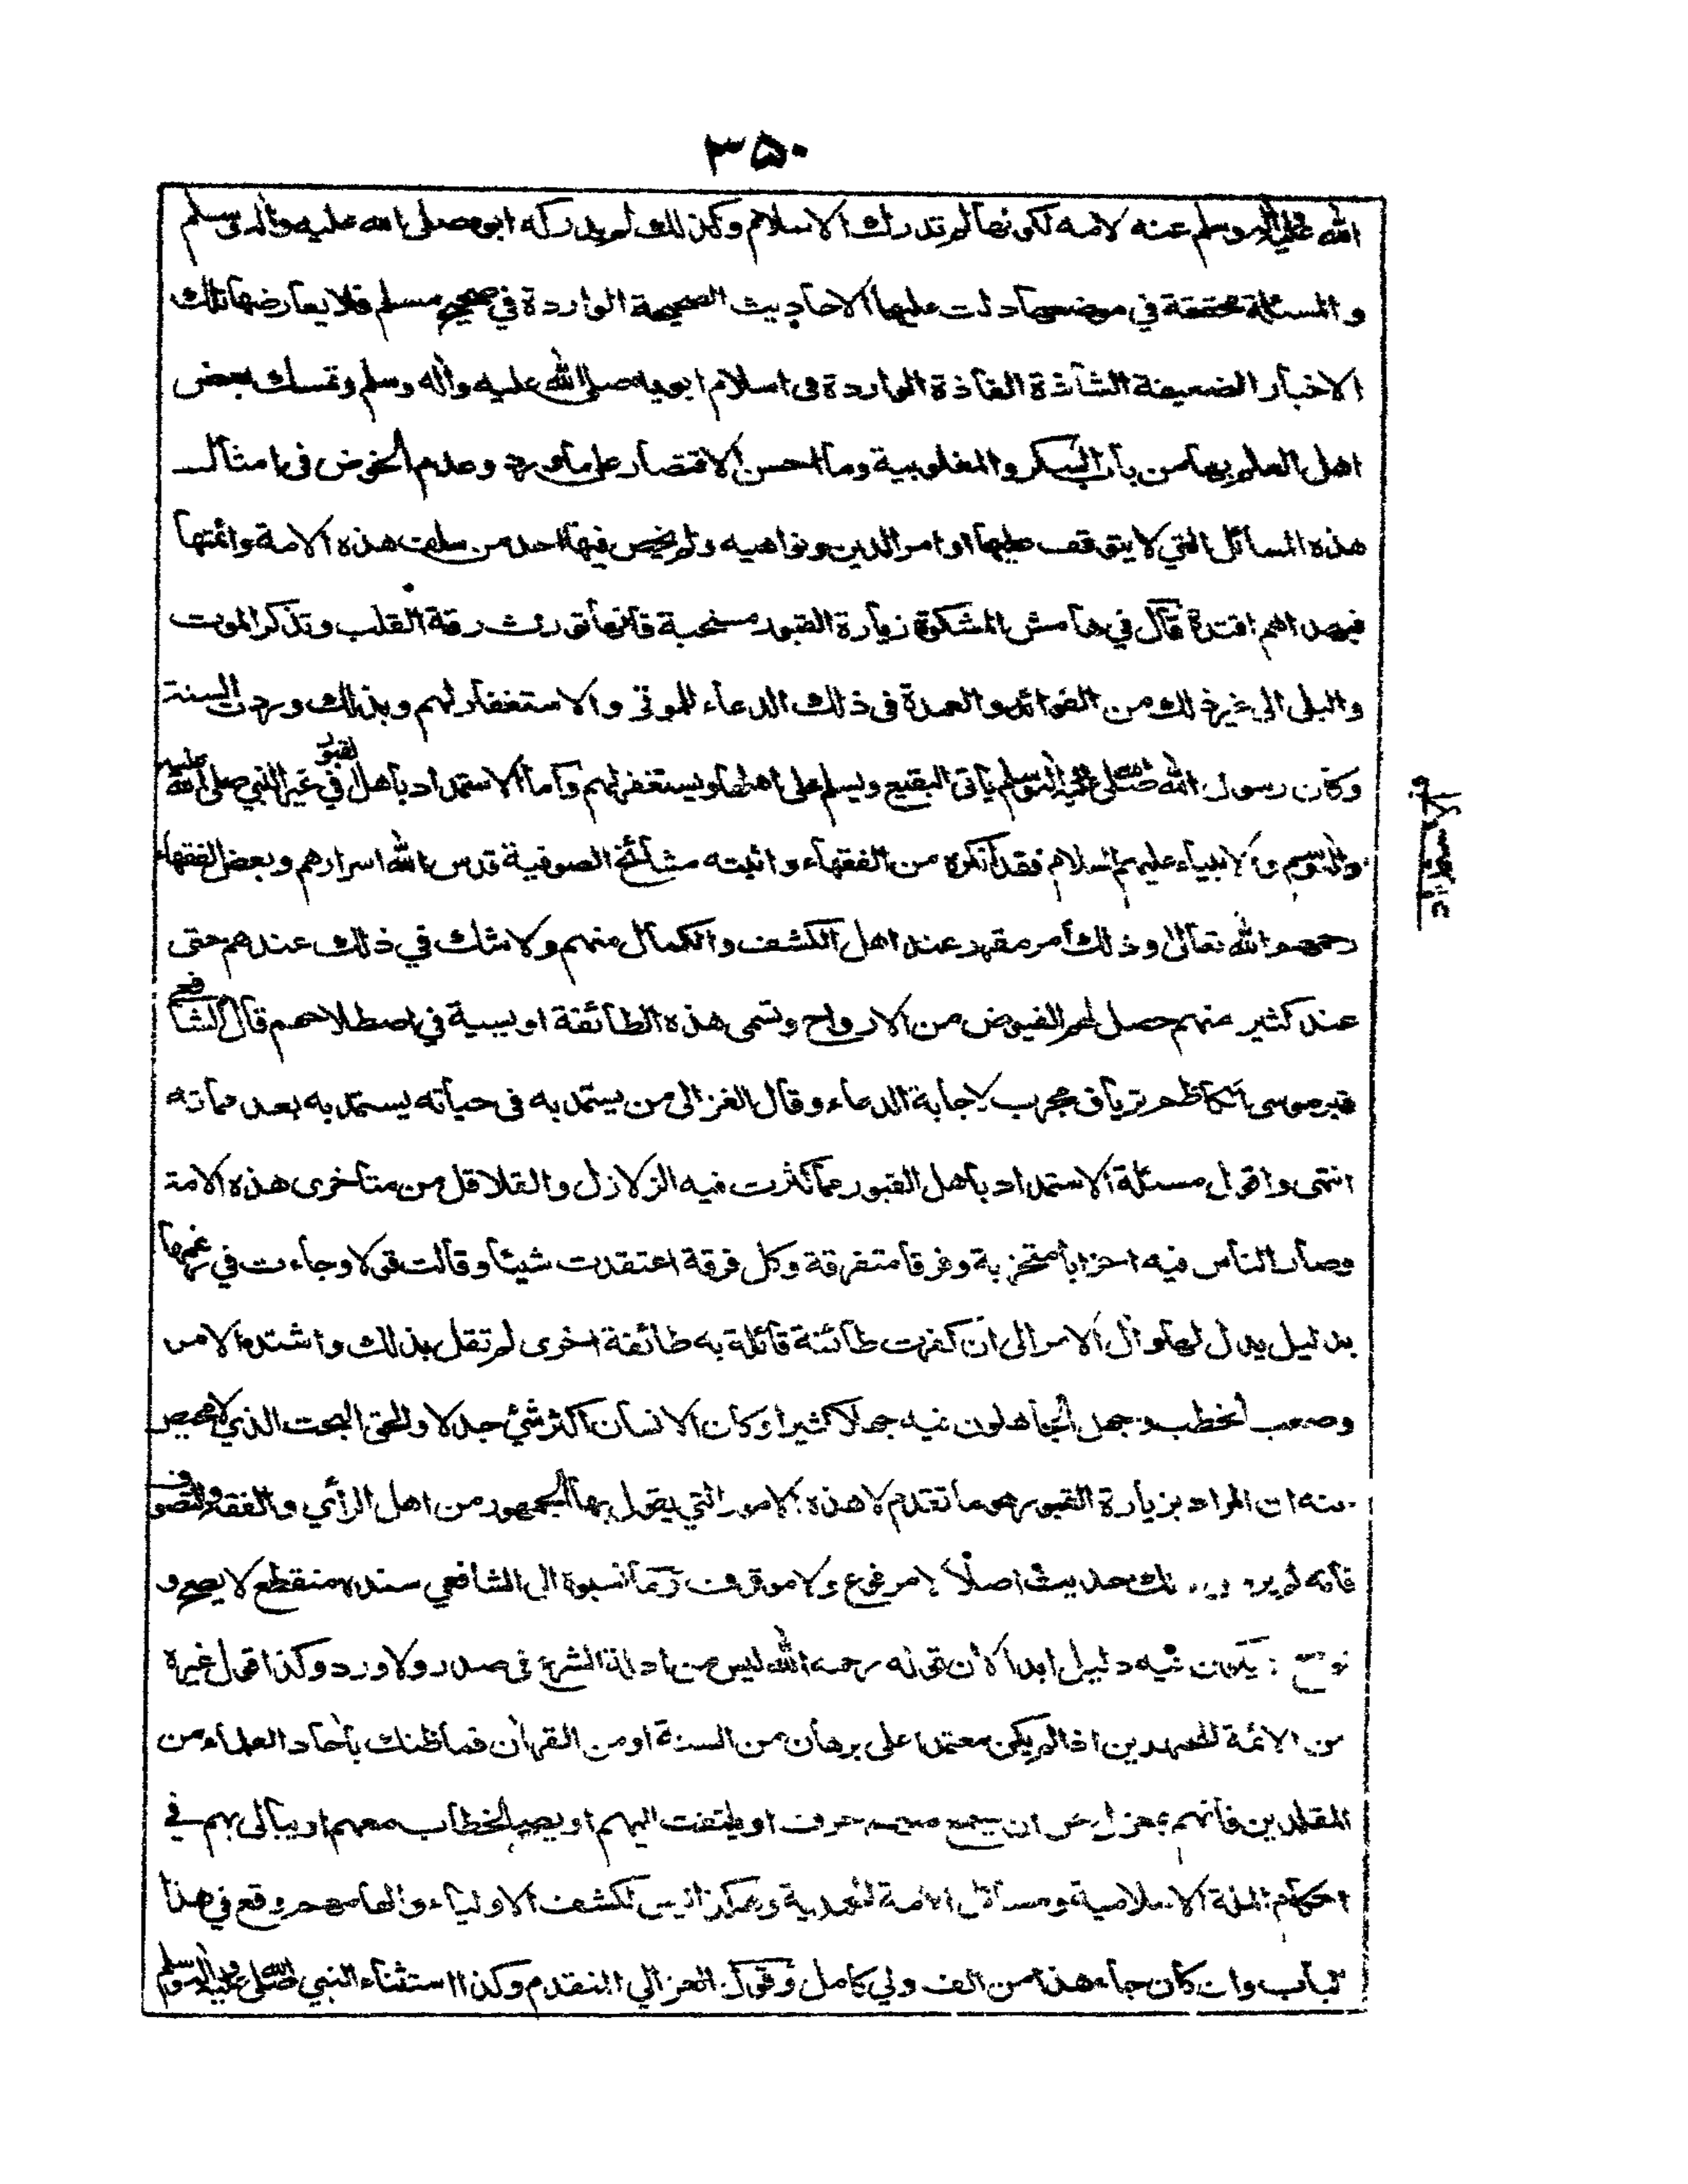 ٣٥٠
الله عليه وآله وسلم عنه لامه لكونها لم تدرك الاسلام وكذلك لم يدركه ابوه صلى الله عليه وآله وسلم
والمسئلة محققة في موضعها دلت عليها الاحاديث الصحيحة الواردة في صحيح مسلم فلا يعارضها تلك
الاخبار الضعيفة الشاذة الفاذة الواردة فى اسلام ابويه صلى الله عليه وآله وسلم وتمسك بعض
اهل العلم بها من باب السكر والمغلوبية وما احسن الاقتصار على ما ورد وعدم الخوض فى امثال
هذه المسائل التي لا يتوقف عليها اوامر الدين ونواهيه ولم يخض فيها احد من سلف هذه الامة وائمتها
فبهداهم اقتده قال في هامش المشكوة زيارة القبور مستحبة فانها تورث رقة القلب وتذكر الموت
والبلى الى غير ذلك من الفوائد والعمدة فى ذلك الدعاء للموتى والاستغفار لهم وبذلك وردت السنة
وكان رسول الله صلى الله عليه وآله وسلم يأتى البقيع ويسلم على اهلها ويستغفر لهم واما الاستمداد باهل القبور في غير النبي صلى الله عليه
وآله وسلم والانبياء عليهم السلام فقد انكره من الفقهاء واثبته مشائخ الصوفية قدس الله اسرارهم وبعض الفقهاء
رحمهم الله تعالى وذلك امر مقرر عند اهل الكشف والكمال منهم ولا شك في ذلك عندهم حتى
عند كثير منهم حصل لهم الفيوض من الارواح وتسمى هذه الطائفة اويسية في اصطلاحهم قال الشافعي
قبر موسى الكاظم ترياق مجرب لاجابة الدعاء وقال الغزالى من يستمد به فى حياته يستمد به بعد مماته
انتهى واقول مسئلة الاستمداد باهل القبور مما كثرت فيه الزلازل والقلاقل من متأخرى هذه الامة
وصار الناس فيه احزابا متحزبة وفرقا متفرقة وكل فرقة اعتقدت شيئا وقالت قولا وجاءت في زعمها
بدليل يدل لها وآل الامر الى ان كفرت طائفة قائلة به طائفة اخرى لم تقل بذلك واشتد الامر
وصعب الخطب وجهل الجاهلون فيه جهلا كثيرا وكان الانسان اكثر شئ جدلا والحق البحت الذي لا محيص
عنه ان المراد بزيارة القبور هو ما تقدم لا هذه الامور التي يقول بها الجمهور من اهل الرأي والفقه والتصوف
فانه لم يرد في ذلك حديث اصلا لا مرفوع ولا موقوف وما نسبوه الى الشافعي سنده منقطع لا يصح و
لو صح لا يكون فيه دليل ابدا لان قوله رحمه الله ليس من ادلة الشرع فى صدر ولا ورد وكذا قول غيره
من الائمة المجتهدين اذا لم يكن معتمدا على برهان من السنة او من القرآن فما ظنك بآحاد العلماء من
المقلدين فانهم بمعزل عن ان يسمع منهم حرف او يلتفت اليهم او يصير الخطاب معهم او يبالى بهم في
احكام الملة الاسلامية ومسائل الامة المحمدية وهكذا ليس لكشف الاولياء والهامهم وقع في هذا
الباب وان كان جاء هذا من الف ولي كامل وقول الغزالي المتقدم وكذا استثناء النبي صلى الله عليه وآله وسلم